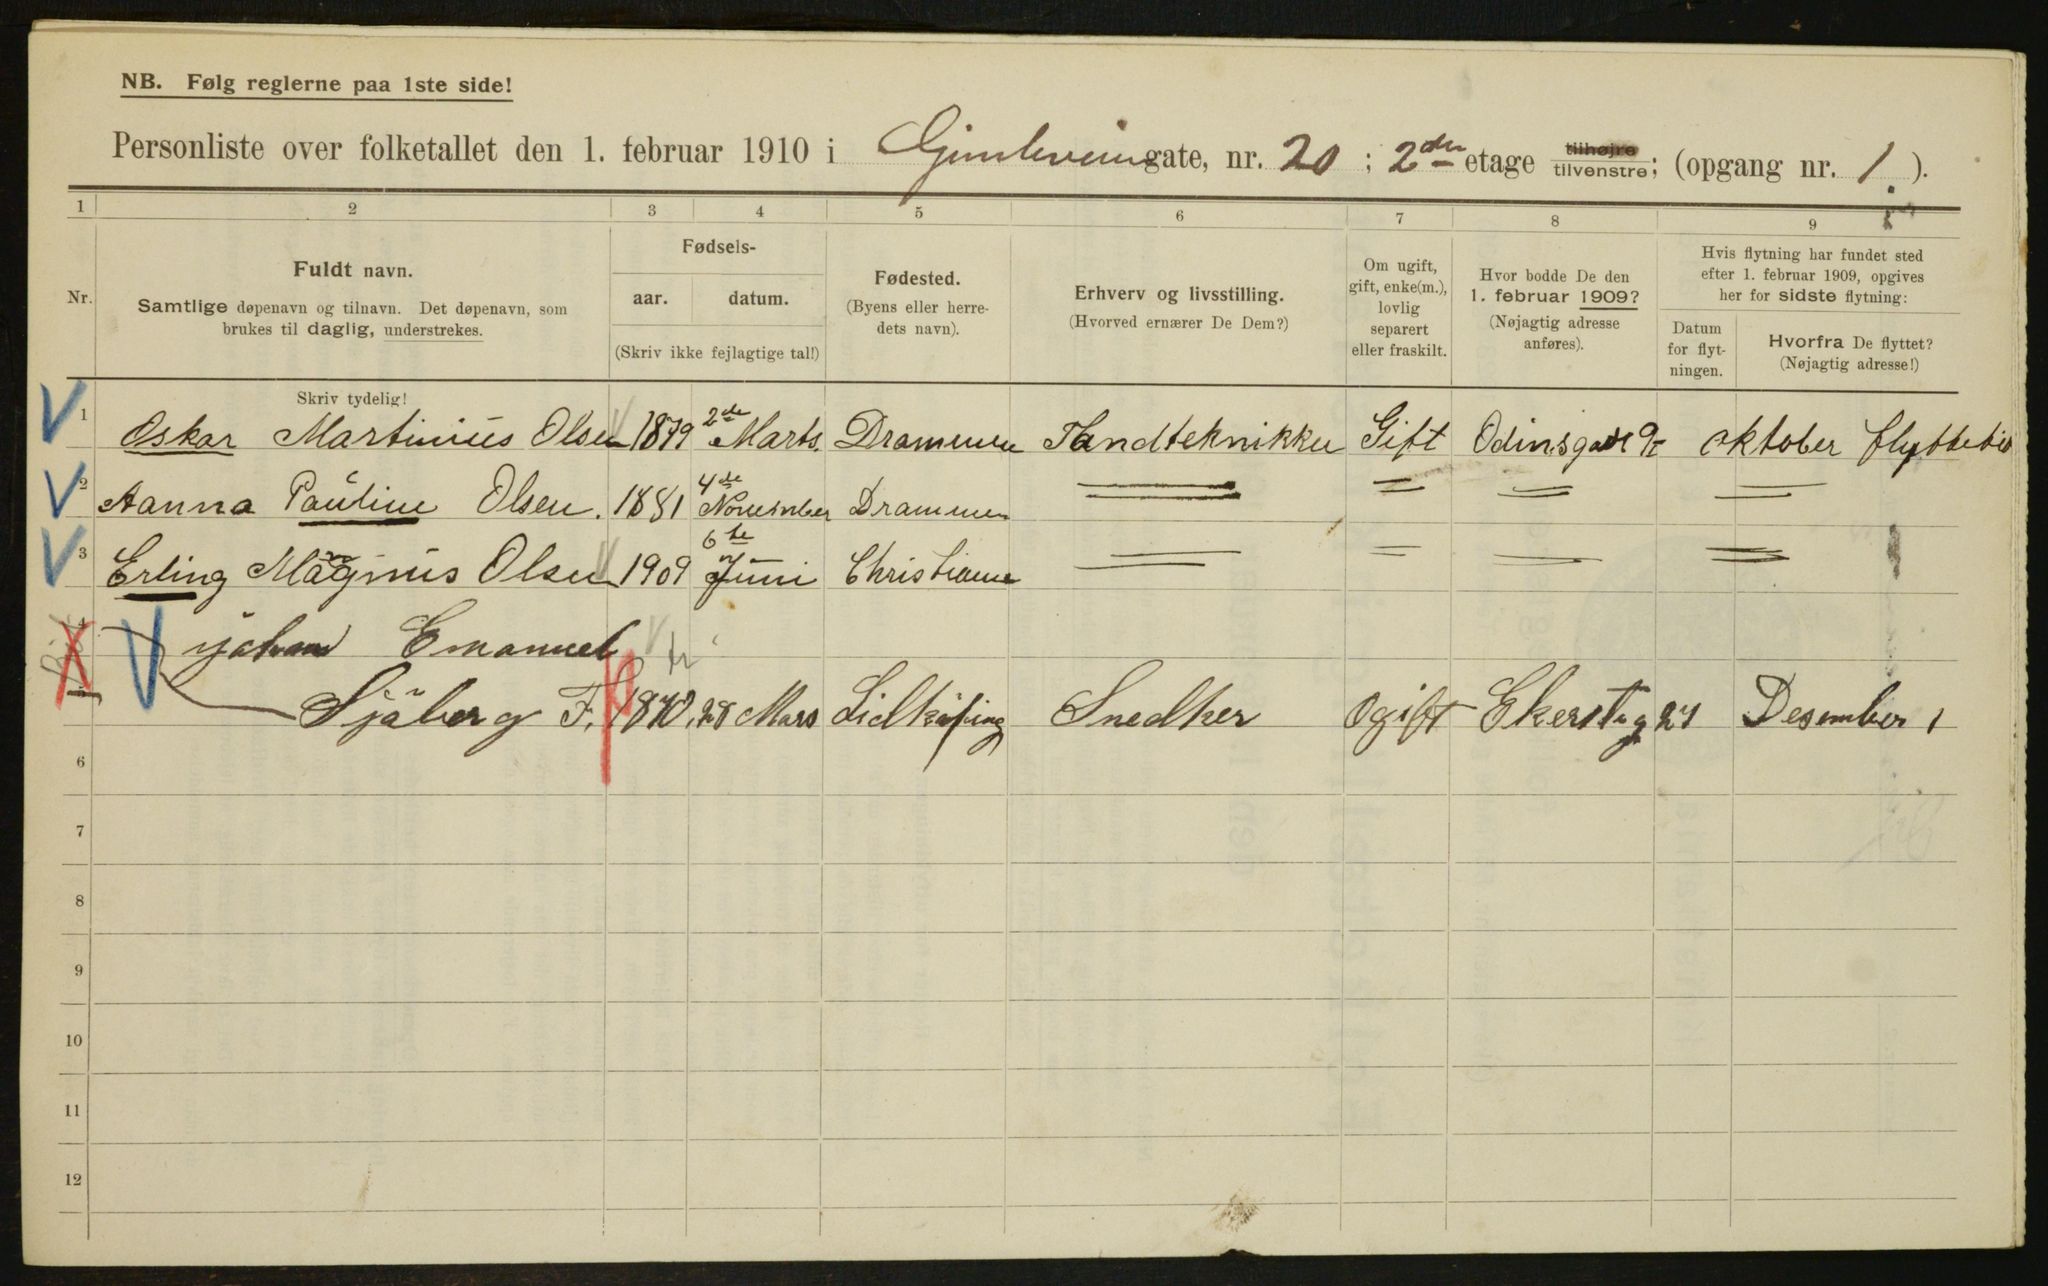 NB. Følg reglerne paa 1ste side!
Personliste over folketallet den 1. februar 1910 i Gimleveien gate, nr. 20 ; 2den etage tilhøjre tilvenstre; (opgang nr. 1 ).
1 2 3 4 5 6 7 8 9
Nr.
Fuldt navn.
Samtlige døpenavn og tilnavn. Det døpenavn, som
brukes til daglig, understrekes.
Fødsels-
aar. datum.
(Skriv ikke fejlagtige tal!)
Fødested.
(Byens eller herre-
dets navn).
Erhverv og livsstilling.
(Hvorved ernærer De Dem?)
Om ugift,
gift, enke(m.),
lovlig
separert
eller fraskilt.
Hvor bodde De den
1. februar 1909?
(Nøjagtig adresse
anføres).
Hvis flytning har fundet sted
efter 1. februar 1909, opgives
her for sidste flytning:
Datum
for flyt-
ningen.
Hvorfra De flyttet?
(Nøjagtig adresse!)
Skriv tydelig!
1 Oskar Martinius Olsen 1879 2de Marts. Drammen Tandtekniker Gift Odinsgade 9 oktober flyttetid
2 Aanna Pauline Olsen. 1881 4de November Drammen
3 Erling Magnus Olsen 1909 6te Juni Christiania
4 Johan Emanuel
5 Sjöberg F. 1870, 28 Mars Lidköping Snedker Ogift Ekerstg 21 Desember 1
6
7
8
9
10
11
12